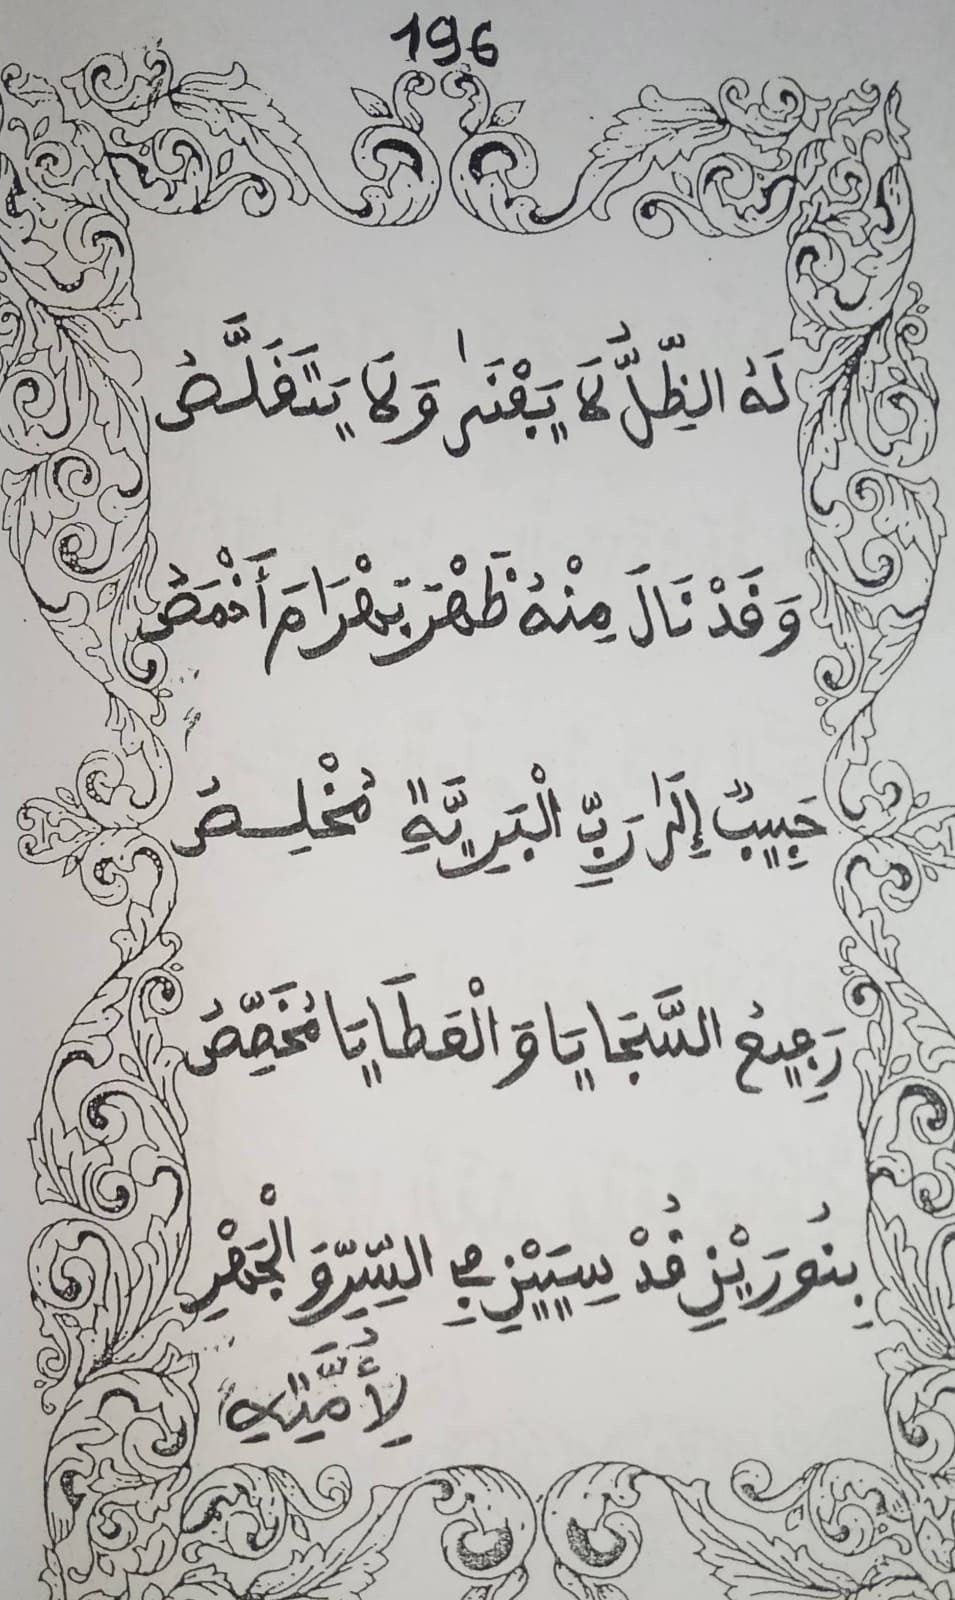 196
لَهُ الظِّلُّ لَا يَبْقَىٰ وَلَا يَتَقَلَّصُ
وَقَدْ نَالَ مِنْهُ ظَهْرَ بَهْرَامَ أَخْمَصُ
حَبِيبٌ إِلَىٰ رَبِّ الْبَرِيَّةِ مُخْلِصُ
رَفِيعُ السَّجَايَا وَ الْعَطَايَا مُخَصِّصُ
بِنُورَيْنِ قُدْسِيَيْنِ فِي السِّرِّ وَ الْجَهْرِ
لِأُمَّتِهِ